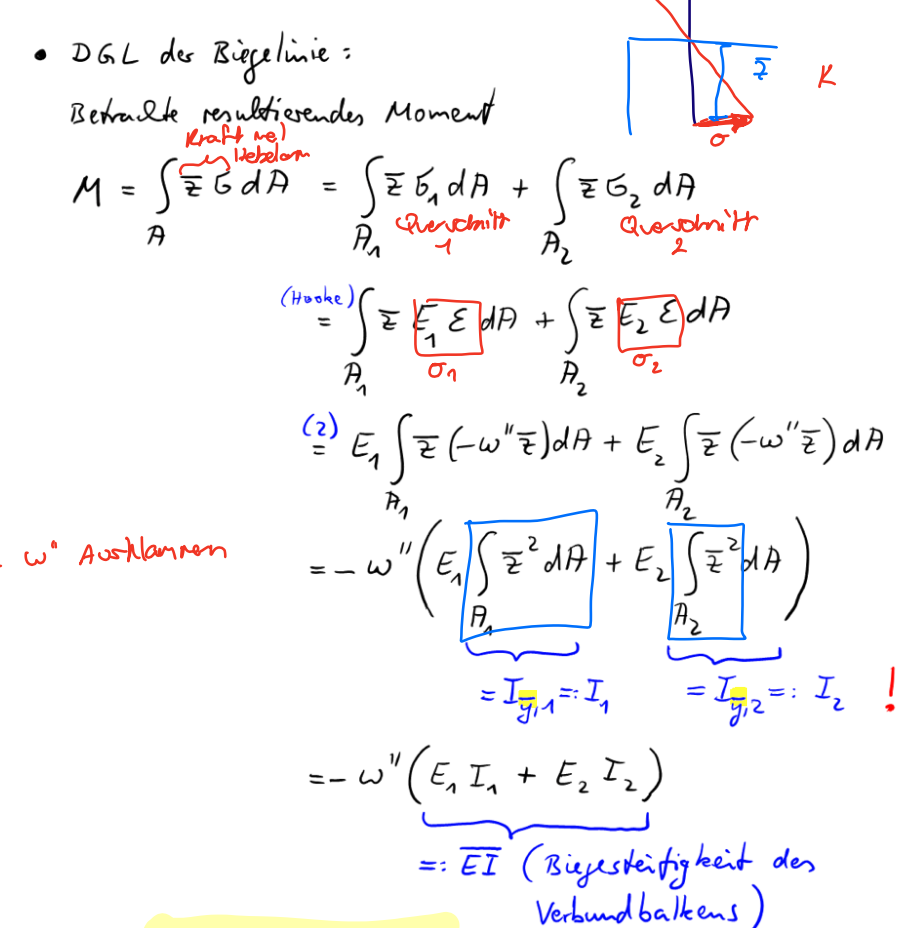 • DGL der Biegelinie:
z̄
K
σ
Betrachte resultierendes Moment
Kraft mal
Hebelarm
M = ∫_A z̄ σ dA = ∫_{A₁} z̄ σ₁ dA + ∫_{A₂} z̄ σ₂ dA
Querschnitt 1
Querschnitt 2
(Hooke) = ∫_{A₁} z̄ E₁ ε dA + ∫_{A₂} z̄ E₂ ε dA
σ₁
σ₂
(2) = E₁ ∫_{A₁} z̄ (-w'' z̄) dA + E₂ ∫_{A₂} z̄ (-w'' z̄) dA
w'' Ausklammern
= - w'' (E₁ ∫_{A₁} z̄² dA + E₂ ∫_{A₂} z̄² dA)
= I_{ȳ,1} =: I₁
= I_{ȳ,2} =: I₂ !
= - w'' (E₁ I₁ + E₂ I₂)
=: E̅I̅ (Biegesteifigkeit des
Verbundbalkens)